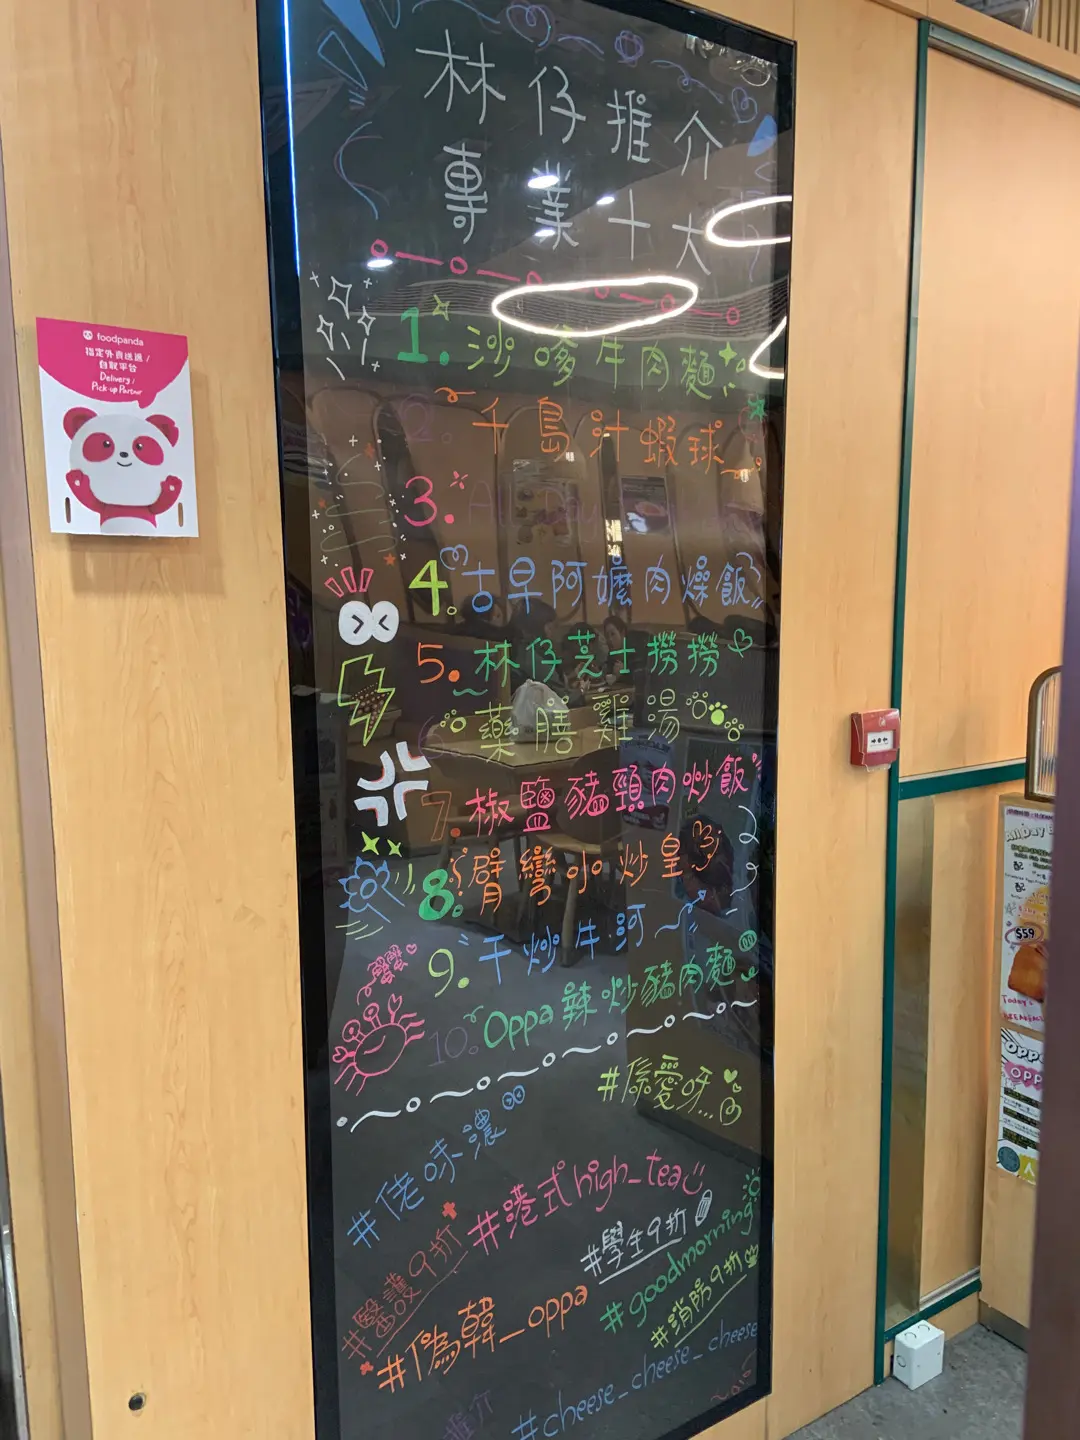 林仔推介
專業十大
1. 沙嗲牛肉麵
2. 千島汁蝦球
3. All Day
4. 古早阿嬤肉燥飯
5. 林仔芝士撈撈
藥膳雞湯
7. 椒鹽豬頸肉炒飯
8. 臂彎小炒皇
9. 干炒牛河
10. Oppa辣炒豬肉麵
#係愛呀...
#佬味濃
#港式high_tea
#醫護9折
#學生9折
#goodmorning
#偽韓_oppa
#消防9折
#cheese_cheese_cheese
推介
foodpanda
指定外賣速遞/
自取平台
Delivery/
Pick-up Partner
All Day
配
配
$59
Today's
OPPA